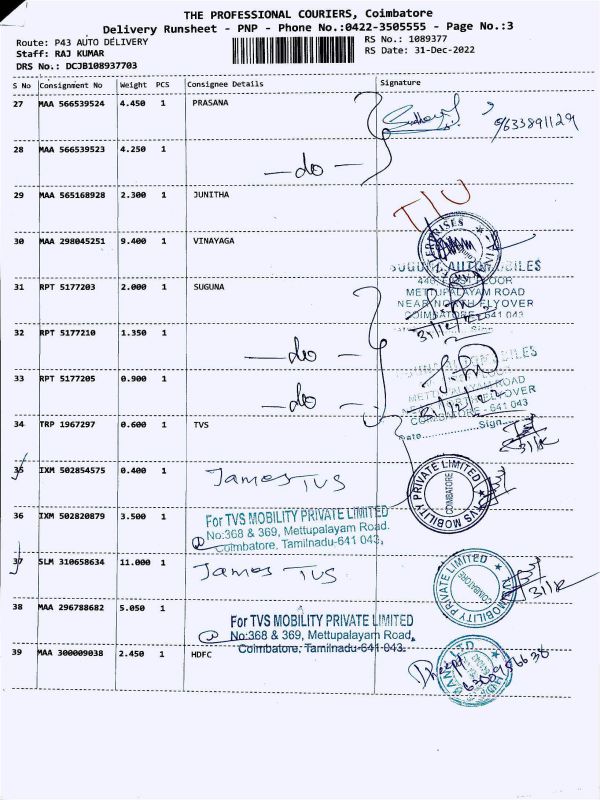 THE PROFESSIONAL COURIERS, Coimbatore
Delivery Runsheet - PNP - Phone No.:0422-3505555 - Page No.:3
Route: P43 AUTO DELIVERY RS No.: 1089377
Staff: RAJ KUMAR RS Date: 31-Dec-2022
DRS No.: DCJB108937703
S No Consignment No Weight PCS Consignee Details Signature
27 MAA 566539524 4.450 1 PRASANA
9633891129
28 MAA 566539523 4.250 1
—do—
29 MAA 565168928 2.300 1 JUNITHA
30 MAA 298045251 9.400 1 VINAYAGA
SUGUNA AUTOMOBILES
METTUPALAYAM ROAD
31 RPT 5177203 2.000 1 SUGUNA
NEAR NORTH FLYOVER
COIMBATORE - 641 043
31/12/22
32 RPT 5177210 1.350 1
—do—
33 RPT 5177205 0.900 1
—do—
METTUPALAYAM ROAD
31/12/22
COIMBATORE - 641 043
34 TRP 1967297 0.600 1 TVS
Date Sign
35 IXM 502854575 0.400 1 James TVS
TVS MOBILITY PRIVATE LIMITED
COIMBATORE
36 IXM 502820879 3.500 1 For TVS MOBILITY PRIVATE LIMITED
No:368 & 369, Mettupalayam Road.
Coimbatore, Tamilnadu-641 043,
37 SLM 310658634 11.000 1 James TVS
TVS MOBILITY PRIVATE LIMITED
COIMBATORE
38 MAA 296788682 5.050 1 For TVS MOBILITY PRIVATE LIMITED
No:368 & 369, Mettupalayam Road,
Coimbatore, Tamilnadu-641 043.
39 MAA 300009038 2.450 1 HDFC